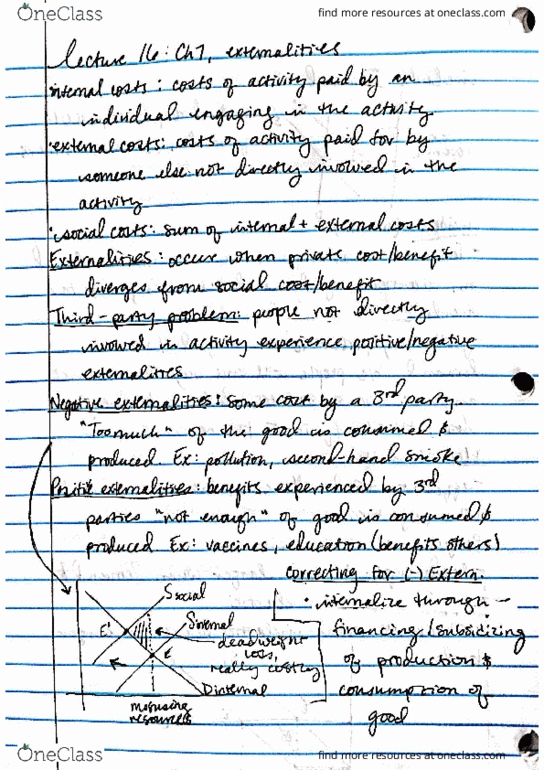 OneClass
find more resources at oneclass.com
Lecture 16: Ch7, externalities
internal costs: costs of activity paid by an
individual engaging in the activity
·external costs: costs of activity paid for by
someone else not directly involved in the
activity
·social costs: sum of internal + external costs
Externalities: occur when private cost/benefit
diverges from social cost/benefit
Third-party problem: people not directly
involved in activity experience positive/negative
externalities
Negative externalities: some cost by a 3rd party.
"Too much" of the good is consumed &
produced. Ex: pollution, second-hand smoke
Positive externalities: benefits experienced by 3rd
parties "not enough" of good is consumed &
produced. Ex: vaccines, education (benefits others)
correcting for (-) Extern.
· internalize through -
financing/subsidizing
of production &
consumption of
good
Ssocial
Sinternal
E'
E
deadweight
loss,
really costly
Dinternal
misusing
resources
OneClass
find more resources at oneclass.com